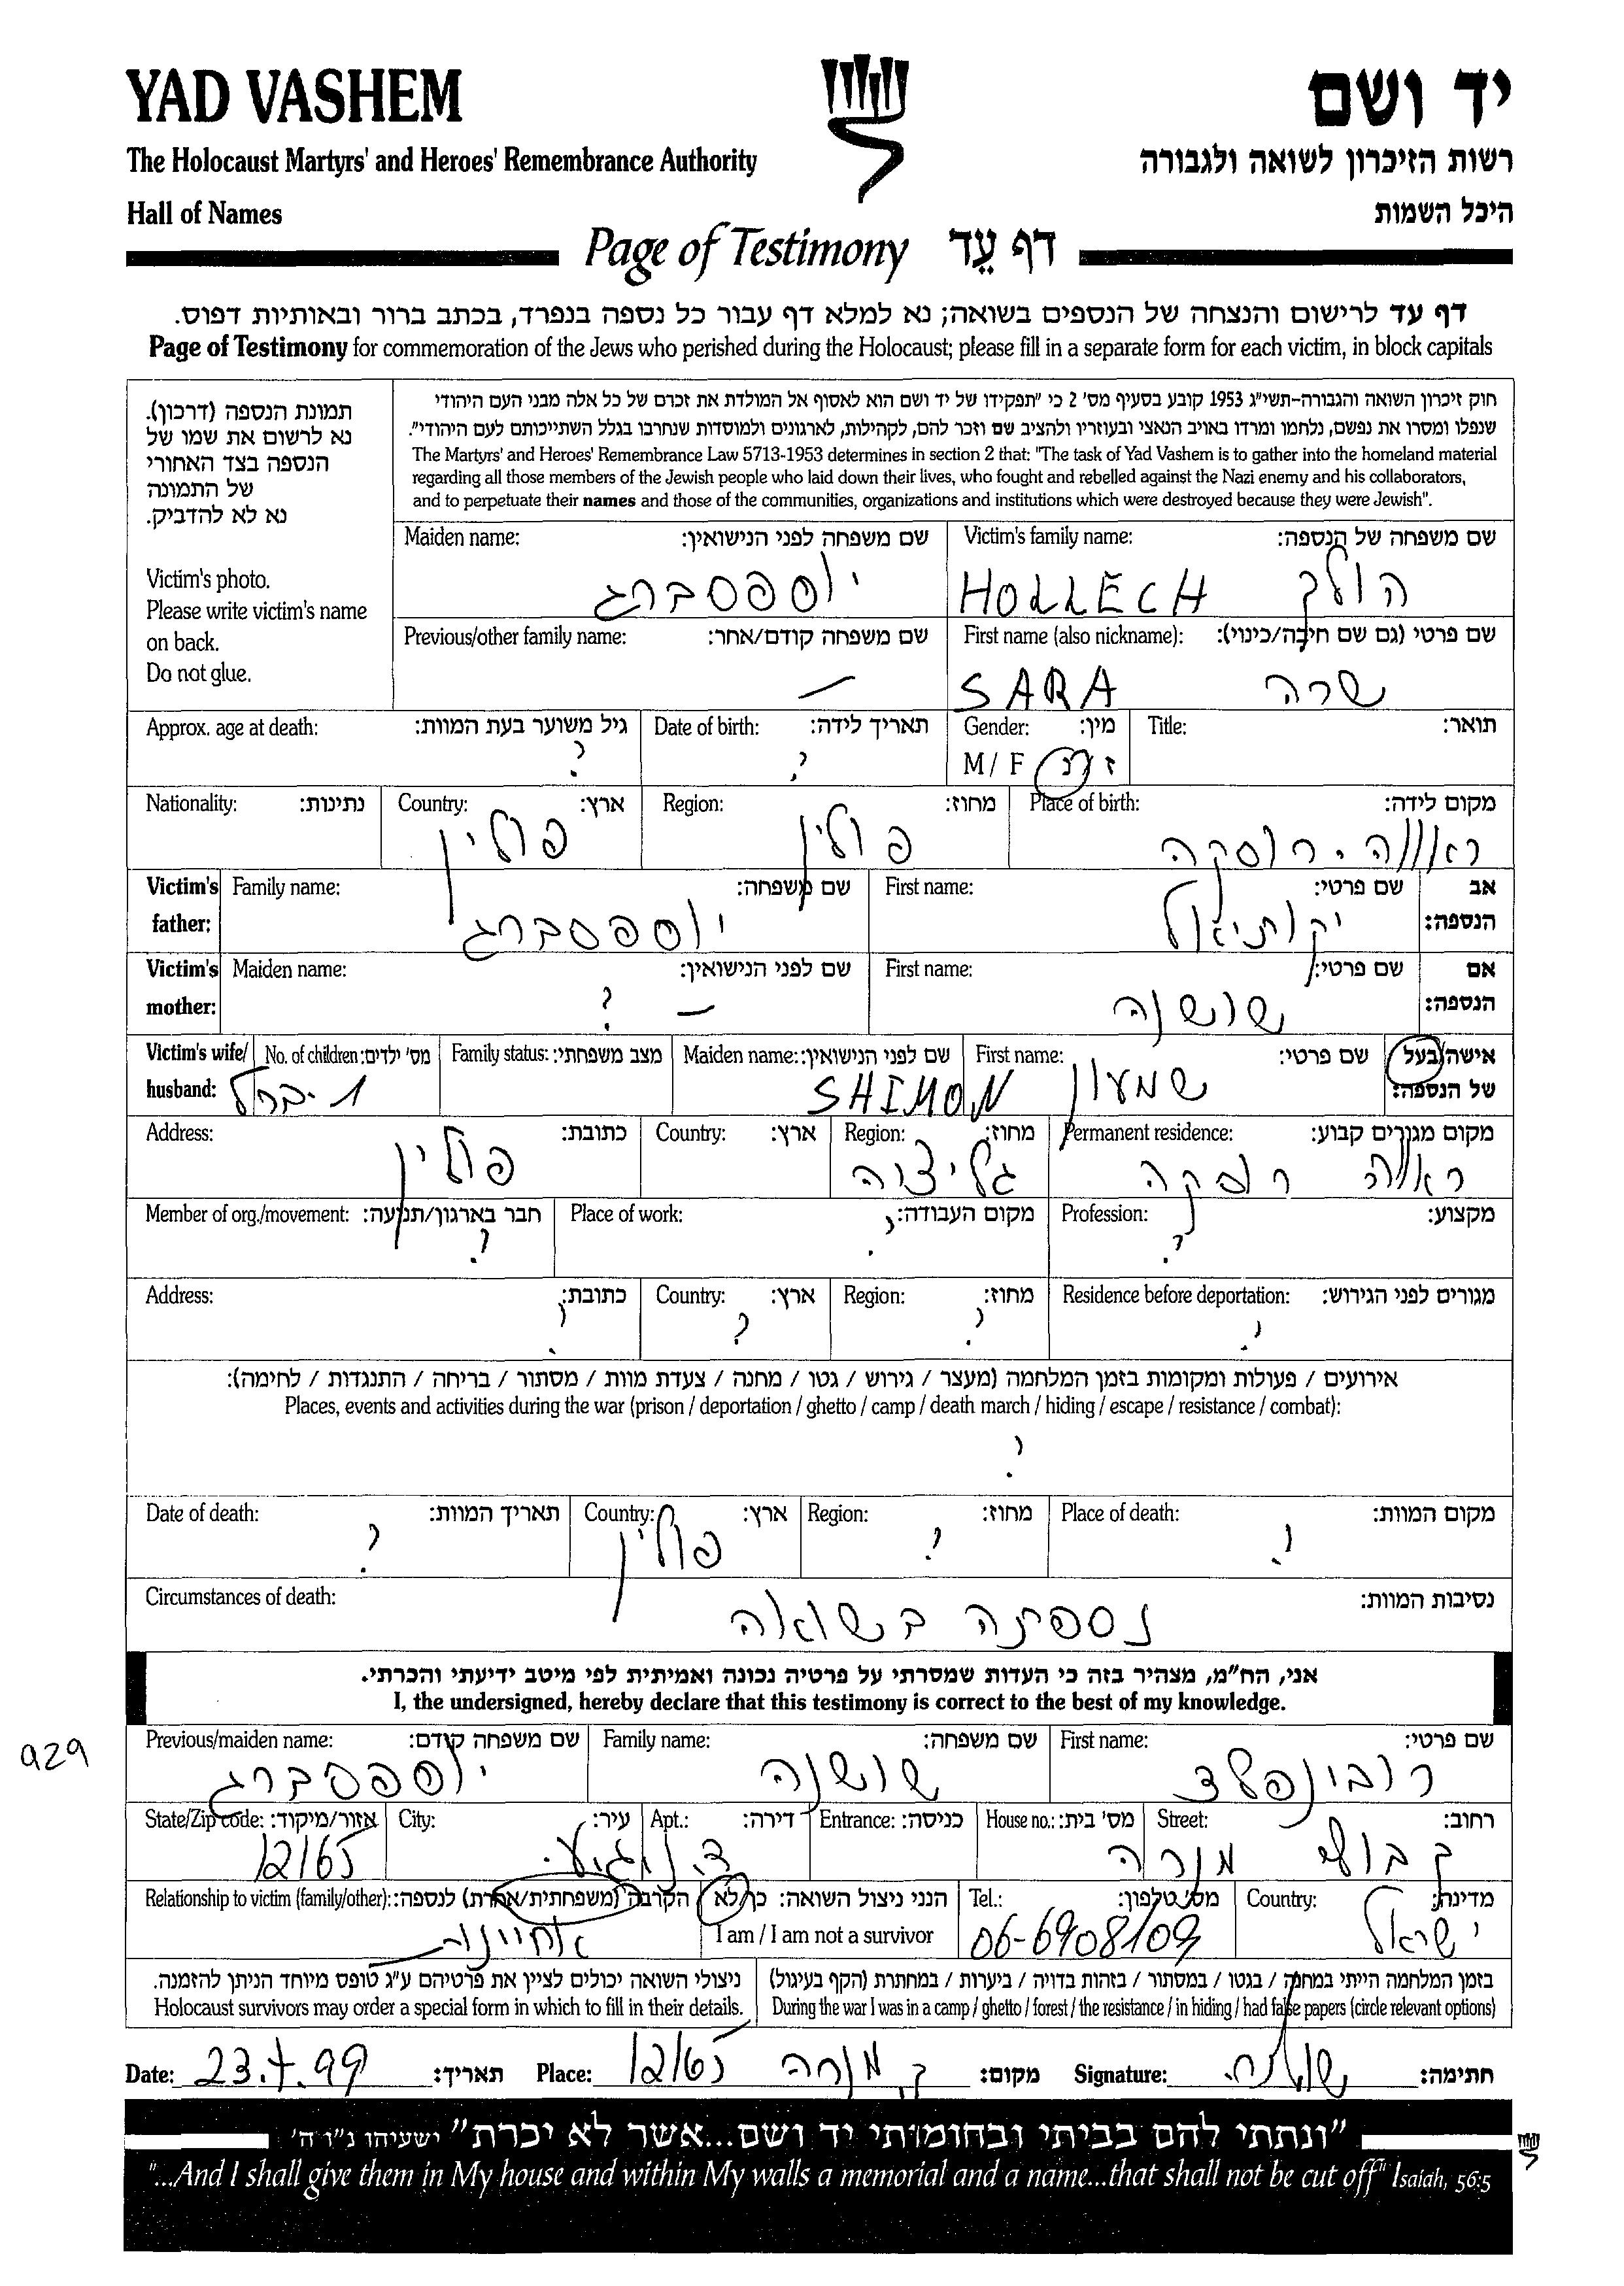 YAD VASHEM
יד ושם
The Holocaust Martyrs' and Heroes' Remembrance Authority
רשות הזיכרון לשואה ולגבורה
Hall of Names
היכל השמות
Page of Testimony דף עֵד
דף עד לרישום והנצחה של הנספים בשואה; נא למלא דף עבור כל נספה בנפרד, בכתב ברור ובאותיות דפוס.
Page of Testimony for commemoration of the Jews who perished during the Holocaust; please fill in a separate form for each victim, in block capitals
תמונת הנספה (דרכון).
נא לרשום את שמו של
הנספה בצד האחורי
של התמונה
נא לא להדביק.
Victim's photo.
Please write victim's name
on back.
Do not glue.
חוק זיכרון השואה והגבורה-תשי"ג 1953 קובע בסעיף מס' 2 כי "תפקידו של יד ושם הוא לאסוף אל המולדת את זכרם של כל אלה מבני העם היהודי
שנפלו ומסרו את נפשם, נלחמו ומרדו באויב הנאצי ובעוזריו ולהציב שם וזכר להם, לקהילות, לארגונים ולמוסדות שנחרבו בגלל השתייכותם לעם היהודי".
The Martyrs' and Heroes' Remembrance Law 5713-1953 determines in section 2 that: "The task of Yad Vashem is to gather into the homeland material
regarding all those members of the Jewish people who laid down their lives, who fought and rebelled against the Nazi enemy and his collaborators,
and to perpetuate their names and those of the communities, organizations and institutions which were destroyed because they were Jewish".
Victim's family name: שם משפחה של הנספה:
HOLLECH הולך
Maiden name: שם משפחה לפני הנישואין:
יוספסברג
First name (also nickname): שם פרטי (גם שם חיבה/כינוי):
SARA שרה
Previous/other family name: שם משפחה קודם/אחר:
—
Title: תואר:
Gender: מין:
M / F ז / נ
Date of birth: תאריך לידה:
?
Approx. age at death: גיל משוער בעת המוות:
?
Place of birth: מקום לידה:
ראווה-רוסקה
Region: מחוז:
פולין
Country: ארץ:
פולין
Nationality: נתינות:
Victim's father: אב הנספה:
First name: שם פרטי:
יקותיאל
Family name: שם משפחה:
יוספסברג
Victim's mother: אם הנספה:
First name: שם פרטי:
שושנה
Maiden name: שם לפני הנישואין:
— ?
Victim's wife/ husband: אישה/בעל של הנספה:
First name: שם פרטי:
שמעון SHIMON
Maiden name: שם לפני הנישואין:
Family status: מצב משפחתי:
No. of children: מס' ילדים:
1 - ברל
Permanent residence: מקום מגורים קבוע:
ראווה רוסקה
Region: מחוז:
גליציה
Country: ארץ:
Address: כתובת:
פולין
Profession: מקצוע:
?
Place of work: מקום העבודה:
?
Member of org./movement: חבר בארגון/תנועה:
?
Residence before deportation: מגורים לפני הגירוש:
?
Region: מחוז:
?
Country: ארץ:
?
Address: כתובת:
?
אירועים / פעולות ומקומות בזמן המלחמה (מעצר / גירוש / גטו / מחנה / צעדת מוות / מסתור / בריחה / התנגדות / לחימה):
Places, events and activities during the war (prison / deportation / ghetto / camp / death march / hiding / escape / resistance / combat):
?
Place of death: מקום המוות:
?
Region: מחוז:
?
Country: ארץ:
פולין
Date of death: תאריך המוות:
?
Circumstances of death: נסיבות המוות:
נספתה בשואה
אני, הח"מ, מצהיר בזה כי העדות שמסרתי על פרטיה נכונה ואמיתית לפי מיטב ידיעתי והכרתי.
I, the undersigned, hereby declare that this testimony is correct to the best of my knowledge.
929
First name: שם פרטי:
רובינפלד
Family name: שם משפחה:
שושנה
Previous/maiden name: שם משפחה קודם:
יוספסברג
Street: רחוב:
קבוץ מנרה
House no.: מס' בית:
Entrance: כניסה:
Apt.: דירה:
City: עיר:
State/Zip code: אזור/מיקוד:
12165
Country: מדינה:
ישראל
Tel.: מס' טלפון:
06-6908109
הנני ניצול השואה: כן/לא
I am / I am not a survivor
Relationship to victim (family/other): הקרבה (משפחתית/אחרת) לנספה:
אחיינה
בזמן המלחמה הייתי במחנה / בגטו / במסתור / בזהות בדויה / ביערות / במחתרת (הקף בעיגול)
During the war I was in a camp / ghetto / forest / the resistance / in hiding / had false papers (circle relevant options)
ניצולי השואה יכולים לציין את פרטיהם ע"ג טופס מיוחד הניתן להזמנה.
Holocaust survivors may order a special form in which to fill in their details.
Date: 23.4.99 תאריך: Place: 12165 ק. מנרה מקום: Signature: חתימה:
"ונתתי להם בביתי ובחומותי יד ושם...אשר לא יכרת" ישעיהו נ"ו ה'
"...And I shall give them in My house and within My walls a memorial and a name...that shall not be cut off" Isaiah, 56:5